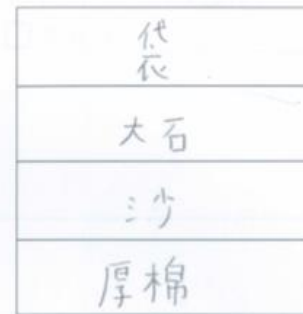 袋
大石
沙
厚棉